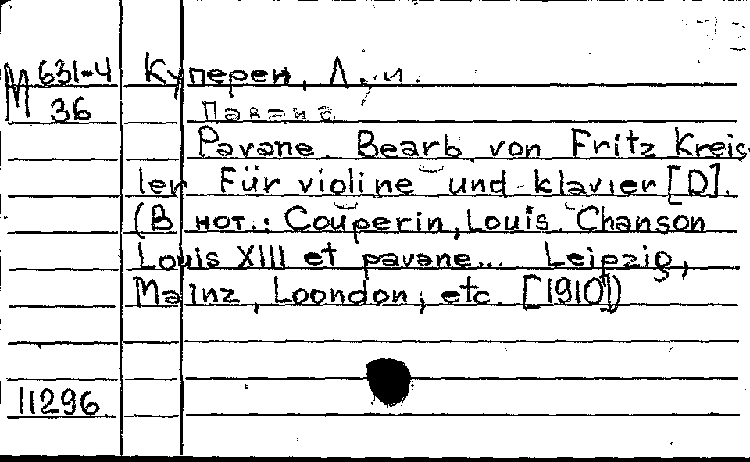 М 631-4 Куперен, Л.
36 Павана
Pavane. Bearb. von Fritz Kreis-
ler Für violine und klavier [D].
(В нот.: Couperin, Louis. Chanson
Louis XIII et pavane... Leipzig,
Mainz, Loondon, etc. [1910])
11296